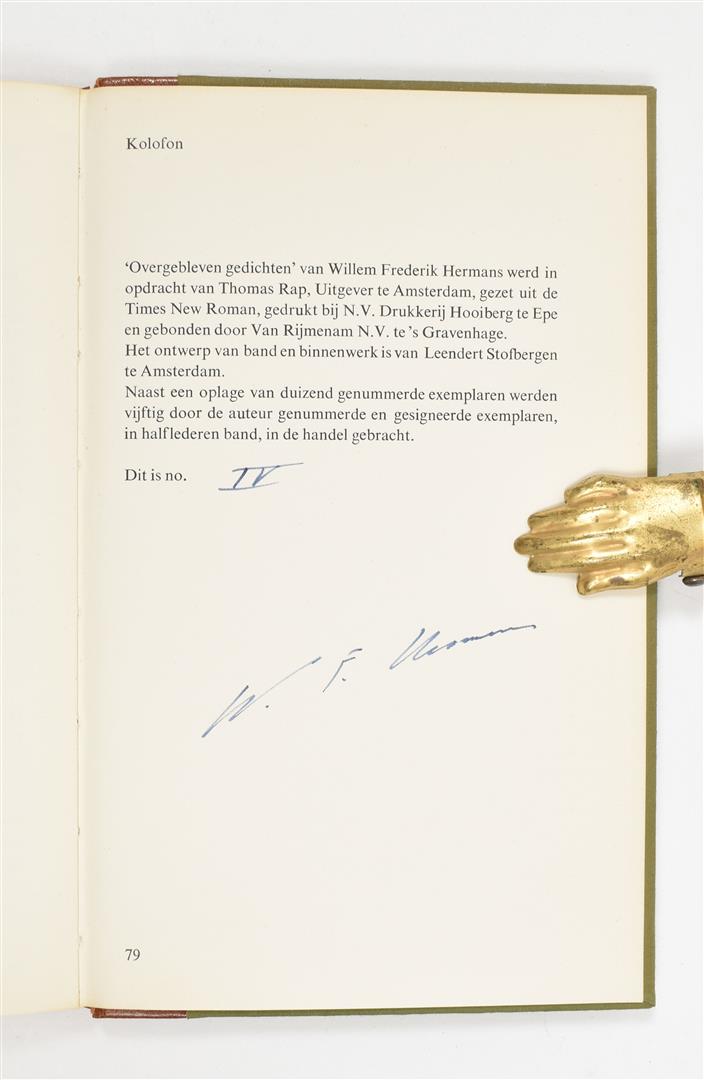 Kolofon
‘Overgebleven gedichten’ van Willem Frederik Hermans werd in
opdracht van Thomas Rap, Uitgever te Amsterdam, gezet uit de
Times New Roman, gedrukt bij N.V. Drukkerij Hooiberg te Epe
en gebonden door Van Rijmenam N.V. te ’s Gravenhage.
Het ontwerp van band en binnenwerk is van Leendert Stofbergen
te Amsterdam.
Naast een oplage van duizend genummerde exemplaren werden
vijftig door de auteur genummerde en gesigneerde exemplaren,
in halflederen band, in de handel gebracht.
Dit is no. IV
W. F. Hermans
79